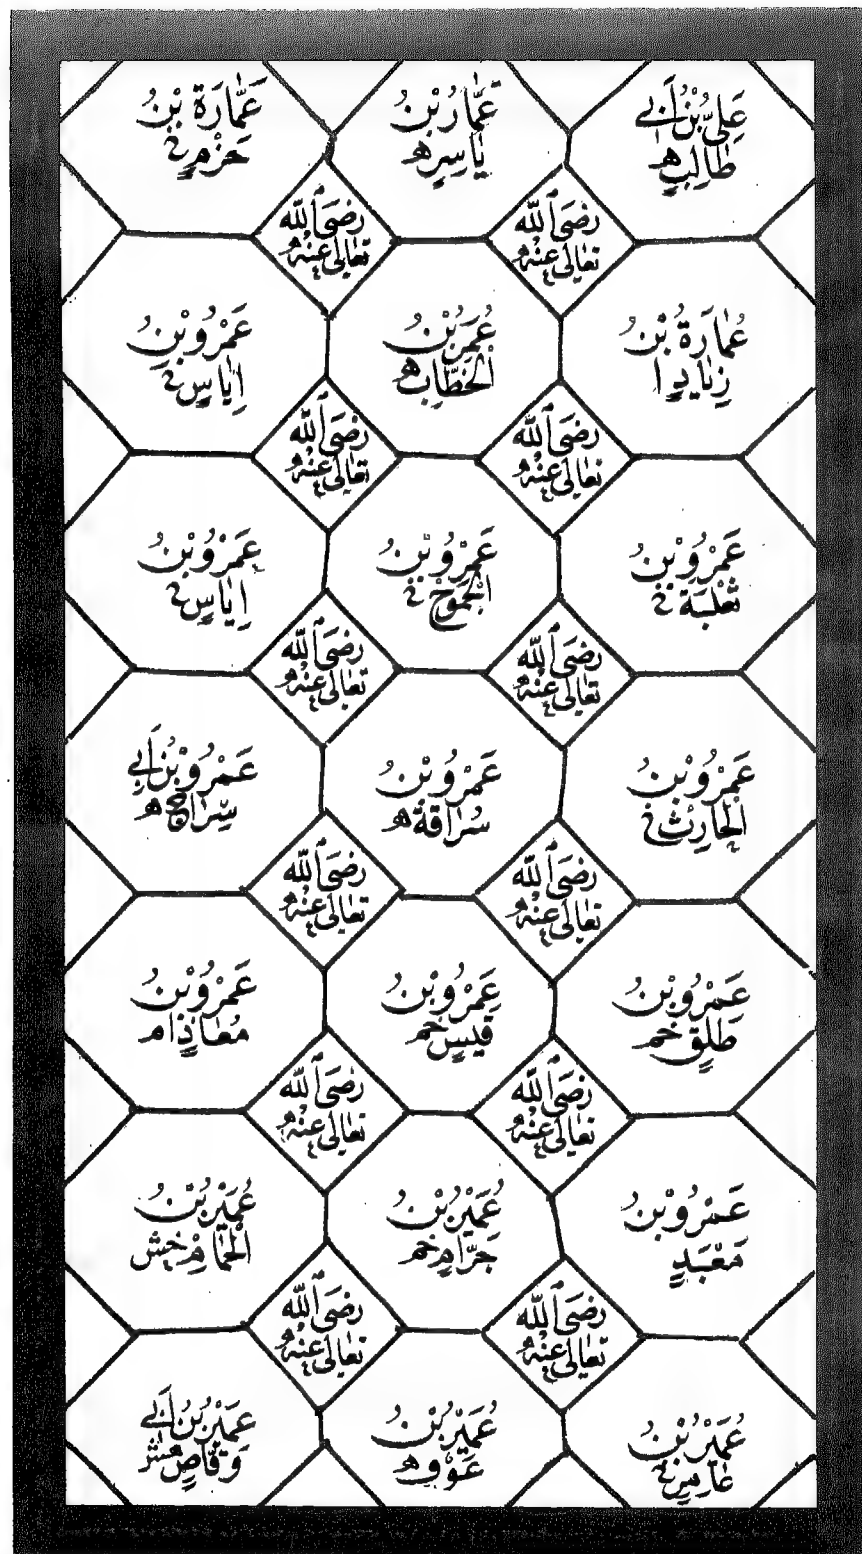 عَلِىُّ بْنُ اَبِى
طَالِبٍ ھ
عَمَّارُ بْنُ
يَاسِرٍ ھ
عَمَّارَةُ بْنُ
حَزْمٍ خ
رَضِىَ اللّٰه
تَعَالٰى عَنْهُ
رَضِىَ اللّٰه
تَعَالٰى عَنْهُ
عُمَارَةُ بْنُ
زِيَادٍ ا
عُمَرُ بْنُ
الْخَطَّابِ ھ
عَمْرُو بْنُ
اِيَاسٍ خ
رَضِىَ اللّٰه
تَعَالٰى عَنْهُ
رَضِىَ اللّٰه
تَعَالٰى عَنْهُ
عَمْرُو بْنُ
ثَعْلَبَةَ خ
عَمْرُو بْنُ
الْجَمُوْحِ خ
عَمْرُو بْنُ
اِيَاسٍ خ
رَضِىَ اللّٰه
تَعَالٰى عَنْهُ
رَضِىَ اللّٰه
تَعَالٰى عَنْهُ
عَمْرُو بْنُ
الْحَارِثِ خ
عَمْرُو بْنُ
سُرَاقَةَ ھ
عَمْرُو بْنُ اَبِى
سِرَاجٍ ھ
رَضِىَ اللّٰه
تَعَالٰى عَنْهُ
رَضِىَ اللّٰه
تَعَالٰى عَنْهُ
عَمْرُو بْنُ
طَلِقٍ خم
عَمْرُو بْنُ
قَيْسٍ خم
عَمْرُو بْنُ
مُعَاذٍ ام
رَضِىَ اللّٰه
تَعَالٰى عَنْهُ
رَضِىَ اللّٰه
تَعَالٰى عَنْهُ
عَمْرُو بْنُ
مَعْبَدٍ
عُمَيْرُ بْنُ
حَرَّامٍ خم
عُمَيْرُ بْنُ
الْحُمَامِ خش
رَضِىَ اللّٰه
تَعَالٰى عَنْهُ
رَضِىَ اللّٰه
تَعَالٰى عَنْهُ
عُمَيْرُ بْنُ
عَامِرٍ خ
عُمَيْرُ بْنُ
عَوْفٍ ھ
عُمَيْرُ بْنُ اَبِى
وَقَّاصٍ ھش